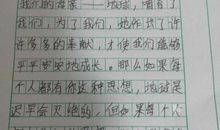 我们的母亲——地球，哺育了
我们，为了我们，她作出了许
许多多的奉献，才使我们能够
平平安安地成长。那么如果每
个人都有你这种思想，地球是
迟早会灭绝的，但如果每个人